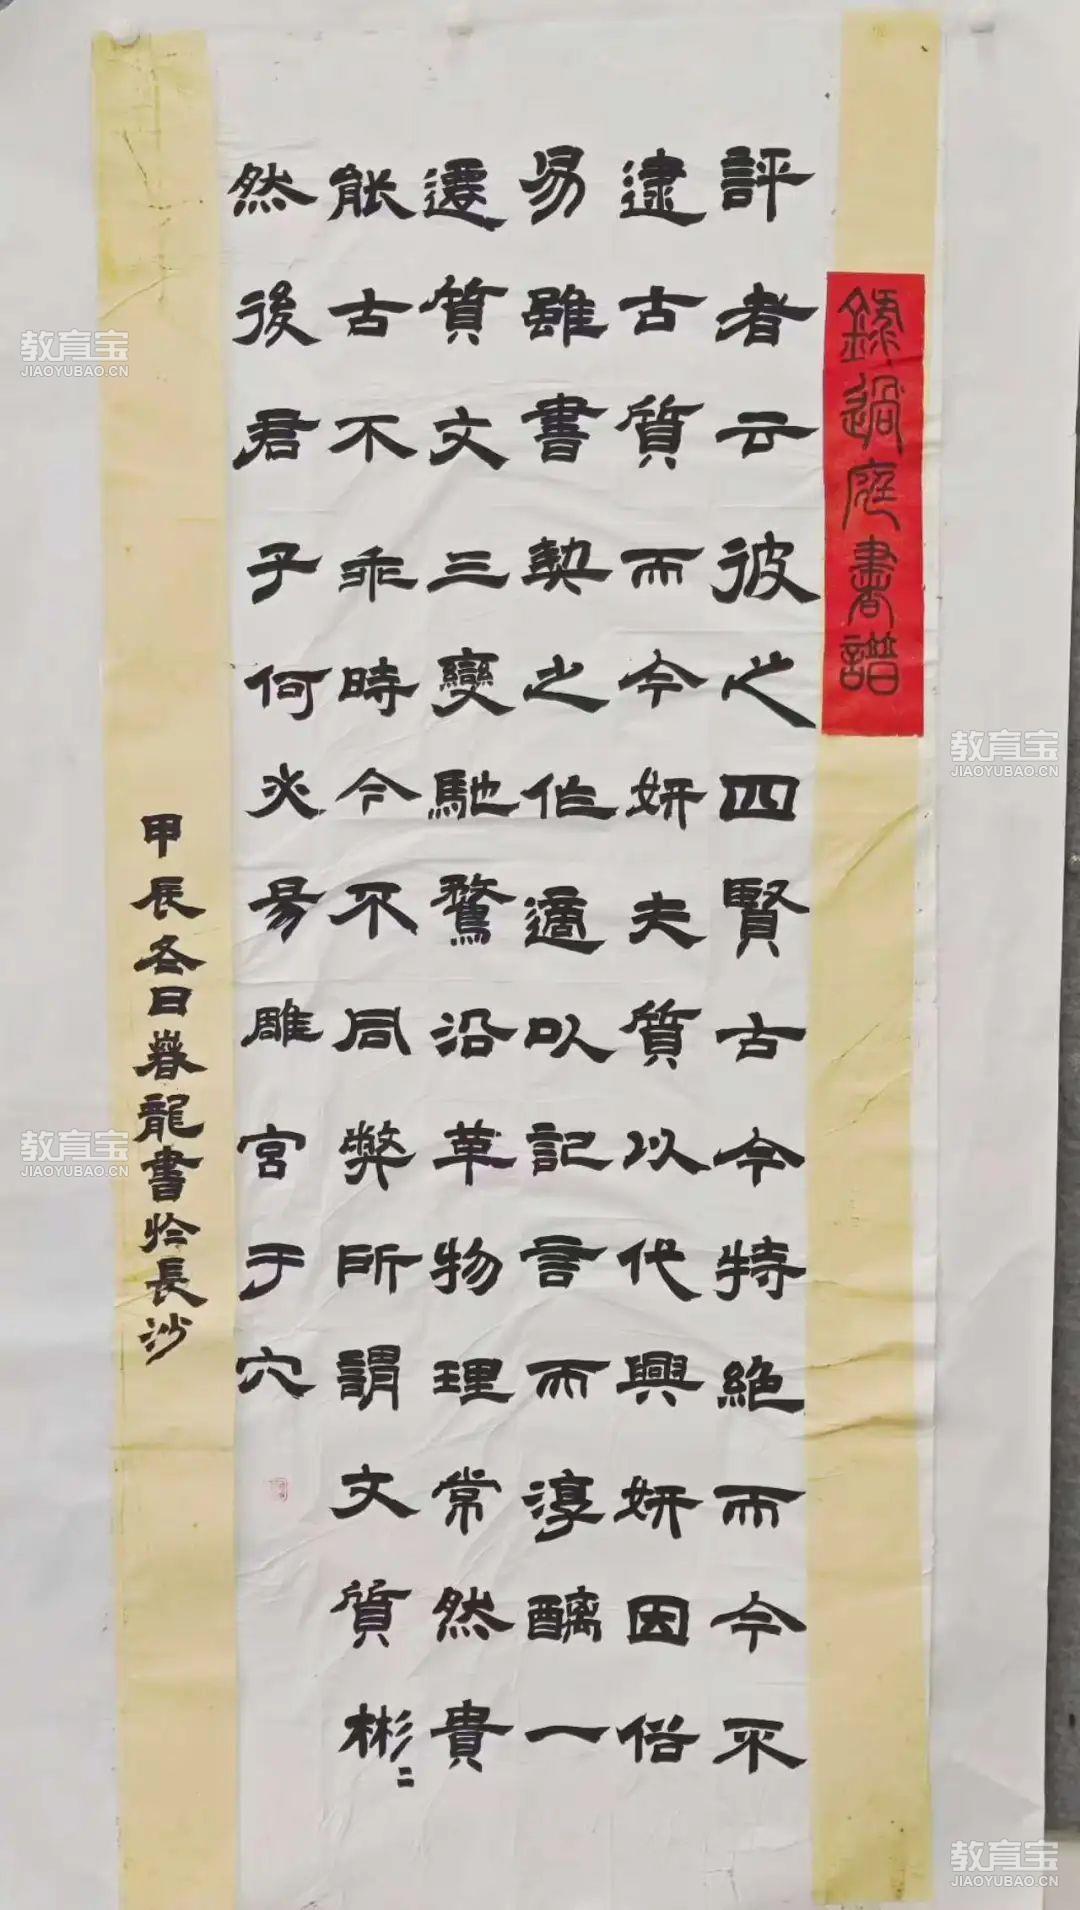 錄過庭書譜
評者云彼之四賢古今特絶而今不
逮古質而今妍夫質以代興妍因俗
易雖書契之作適以記言而淳醨一
遷質文三變馳騖沿革物理常然貴
能古不乖時今不同弊所謂文質彬〻
然後君子何必易雕宮于穴
甲辰冬日春龍書於長沙
教育宝
JIAOYUBAO.CN
教育宝
JIAOYUBAO.CN
教育宝
JIAOYUBAO.CN
教育宝
JIAOYUBAO.CN